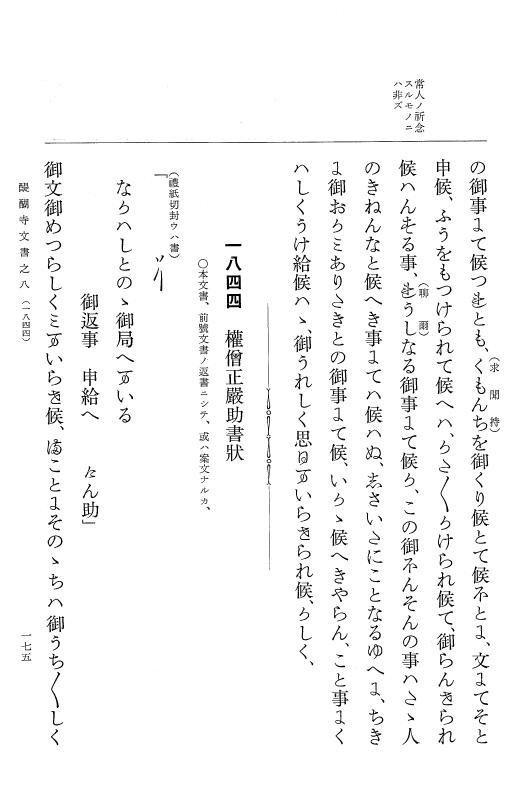 常人ノ祈念
スルモノニ
ハ非ズ
の御事にて候つれとも、くもんちを御くり候とて候ほとに、文にてそと
(求聞持)
申候、ふうをもつけられて候へハ、かた〱かけられ候て、御らんせられ
候ハんする事、れうしなる御事にて候か、この御ほんそんの事ハたゝ人
(聊爾)
のきねんなと候へき事にてハ候ハぬ、しさいたにことなるゆへに、ちき
に御おかミありたきとの御事にて候、いかゝ候へきやらん、こと事にく
ハしくうけ給候ハゝ、御うれしく思ひまいらせられ候、かしく、
一八四四 權僧正嚴助書狀
○本文書、前號文書ノ返書ニシテ、或ハ案文ナルカ、
(禮紙切封ウハ書)
「
なかハしとのゝ御局へまいる
御返事 申給へ けん助」
御文御めつらしくミまいらせ候、まことにそのゝちハ御うち〱しく
醍醐寺文書之八 (一八四四)
一七五